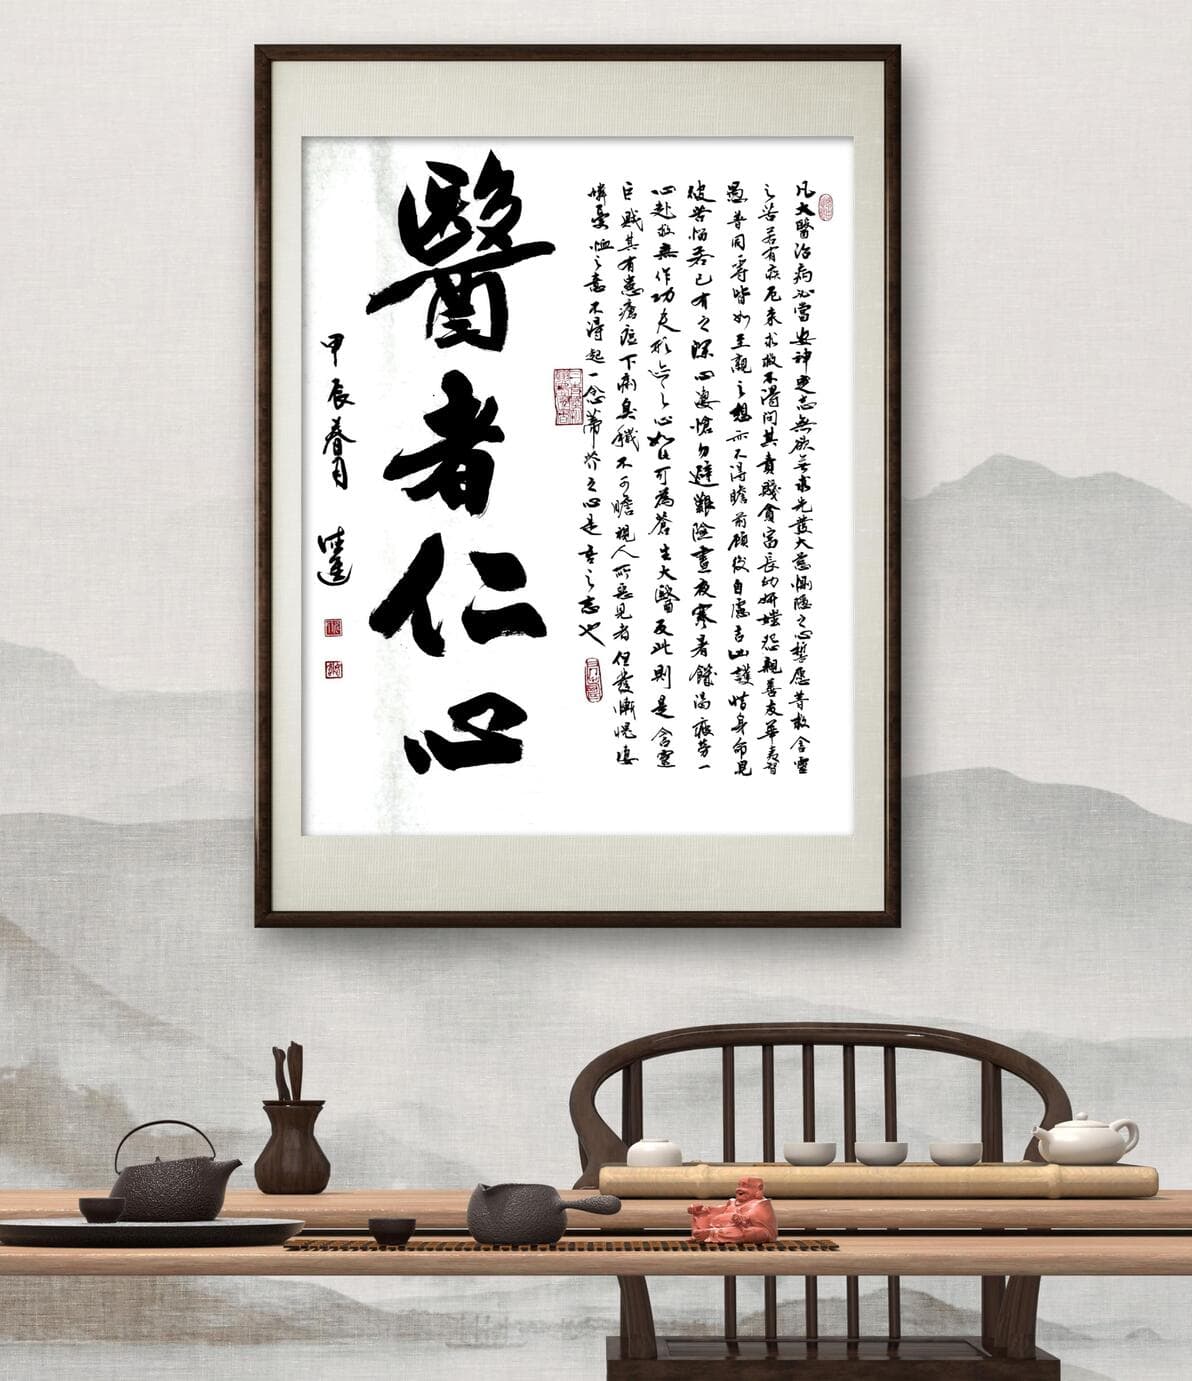 凡大醫治病必當安神定志無欲無求先發大慈惻隱之心誓愿普救含靈
之苦若有疾厄來求救不得問其貴賤貧富長幼妍媸怨親善友華夷智
愚普同一等皆如至親之想亦不得瞻前顧後自慮吉凶護惜身命見
彼苦惱若己有之深心悽愴勿避艱險晝夜寒暑饑渴疲勞一
心赴救無作功夫形迹之心如此可為蒼生大醫反此則是含靈
巨賊其有患瘡痍下痢臭穢不可瞻視人所惡見者但發慚愧悽
憐憂恤之意不得起一念蒂芥之心是吾之志也
醫者仁心
甲辰春月